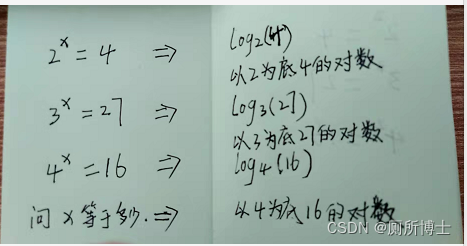 2^x = 4 ⇒ log₂(4)
以2为底4的对数
3^x = 27 ⇒ log₃(27)
以3为底27的对数
4^x = 16 ⇒ log₄(16)
问 x 等于多少. ⇒ 以4为底16的对数
CSDN @厕所博士